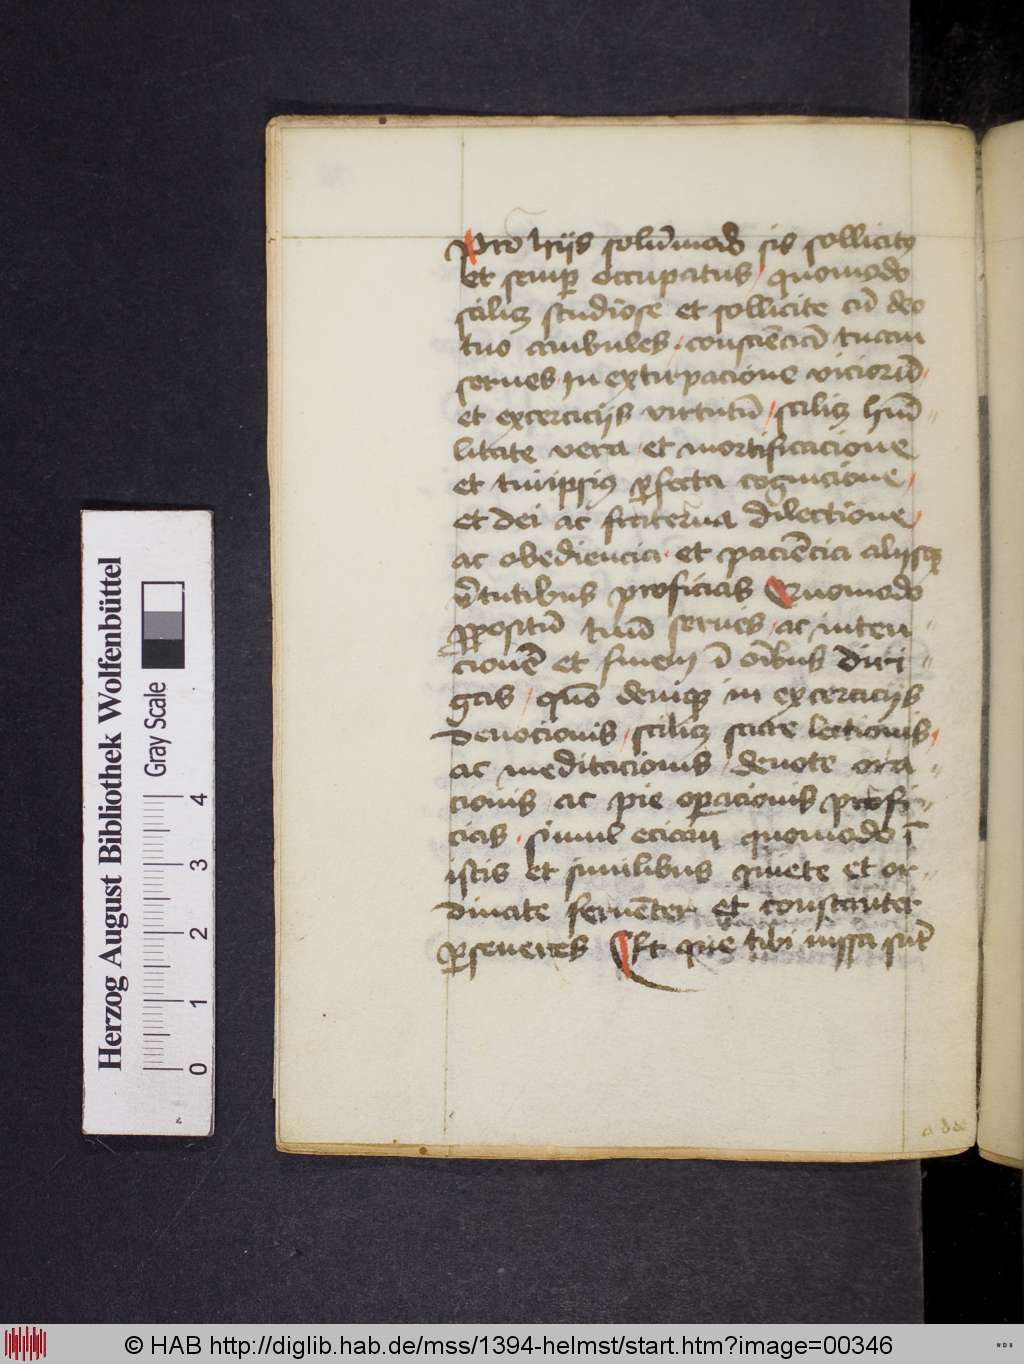 Pro hijs solūmodo sis sollicitꝰ
et semꝑ occupatus / quomodo
scilicꝫ studiose et sollicite cū deo
tuo ambules · consciēciā tuam
serues · in extirpacione viciorū
et excerciciis virtutū / scilicꝫ humi
litate vera et mortificacione
et tuiipsiꝰ ꝑfecta cognicione /
et dei ac fraterna dilectione /
ac obediencia · et paciēcia aliisqꝫ
v̄tutibus proficias Quomodo
ꝓpositū tuū serues · ac inten
cionē et finem ī oībus diri
gas / quō deniqꝫ in excerciciis
deuocionis / scilicꝫ sacre lectionis /
ac meditacionis / deuote ora
cionis / ac pie oꝑacionis profi
cias · simul eciam quomodo ī
istis et similibus quiete et or
dinate feruēter et constanter
ꝑseueres Et que tibi iussa sūt
Herzog August Bibliothek Wolfenbüttel
Gray Scale
0 1 2 3 4
© HAB http://diglib.hab.de/mss/1394-helmst/start.htm?image=00346